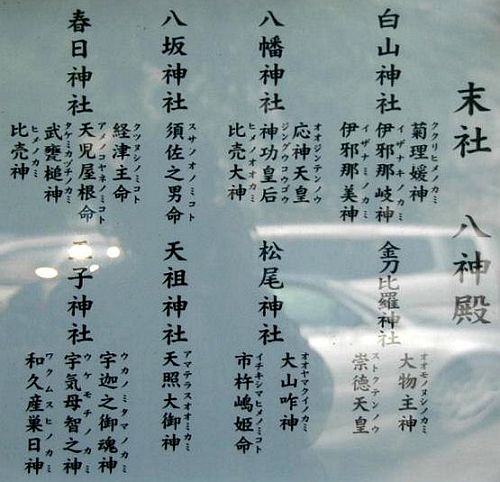 末社 八神殿
白山神社
ククリヒメノカミ
菊理媛神
イザナキノカミ
伊邪那岐神
イザナミノカミ
伊邪那美神
金刀比羅神社
オオモノヌシノカミ
大物主神
ストクテンノウ
崇徳天皇
八幡神社
オオジンテンノウ
応神天皇
ジングウコウゴウ
神功皇后
ヒメノオオカミ
比売大神
松尾神社
オオヤマクイノカミ
大山咋神
イチキシマヒメノミコト
市杵嶋姫命
八坂神社
スサノオノミコト
須佐之男命
天祖神社
アマテラスオオミカミ
天照大御神
春日神社
経津主命
アメノコヤネノミコト
天児屋根命
タケミカヅチノカミ
武甕槌神
ヒメノカミ
比売神
子神社
ウカノミタマノカミ
宇迦之御魂神
ウケモチノカミ
宇気母智之神
ワクムスヒノカミ
和久産巣日神